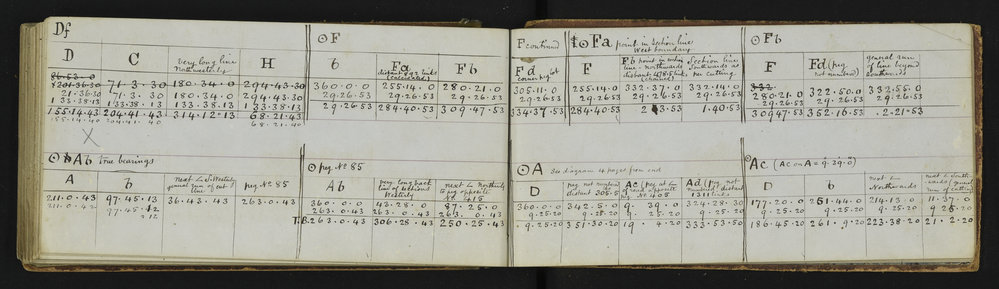 Df
D C very long line Northwesterly H
86.53.0
201.36.30 71.3.30 180.34.0 294.43.30
21.36.30 71.3.30 180.34.0 294.43.30
133.38.13 133.38.13 133.38.13 133.38.13
155.14.43 204.41.43 314.12.13 68.21.43
155.14.40 204.41.40 68.21.40
X
⊙F
b Fa distant 692 links (calculated) Fb
360.0.0 255.14.0 280.21.0
29.26.53 29.26.53 29.26.53
29.26.53 284.40.53 309.47.53
⊙Ab True bearings
A b next L S. Westerly general run of cut line peg No. 85
211.0.43 97.45.13 36.43.43 263.0.43
211.0.42 97.45.12
12
⊙ peg No 85
Ab very long back line of sections Westerly next L Northwards to peg opposite No 415
360.0.0 43.28.0 87.25.0
263.0.43 263.0.43 263.0.43
T.B. 263.0.43 306.28.43 250.25.43
F continued
Fd corner peg lot
305.11.0
29.26.53
334.37.53
⊙Fa point in Section line West boundary
F Fb point in section line northwards distant 478.5 links Section line Southwards as per cutting
255.14.0 332.37.0 332.14.0
29.26.53 29.26.53 29.26.53
284.40.53 2.3.53 1.40.53
⊙Fb
F Fd (peg not number) general run of line beyond Southwards
332
280.21.0 322.50.0 332.55.0
29.26.53 29.26.53 29.26.53
309.47.53 352.16.53 2.21.53
⊙A See diagram 4 pages from end
D peg not number distant 305 links Ac (peg at L of road opposite peg No 405 Ad (peg not number) distant 1311 links
360.0.0 342.5.0 9.39.0 324.28.30
9.25.20 9.25.20 9.25.20 9.25.20
9.25.20 351.30.20 19.4.20 333.53.50
Ac (Ac on A = 9.39.0)
D b next L Northwards next L Southwards general run of cutting
177.20.0 251.44.0 214.13.0 11.37.0
9.25.20 9.25.20 9.25.20 9.25.20
186.45.20 261.9.20 223.38.20 21.2.20